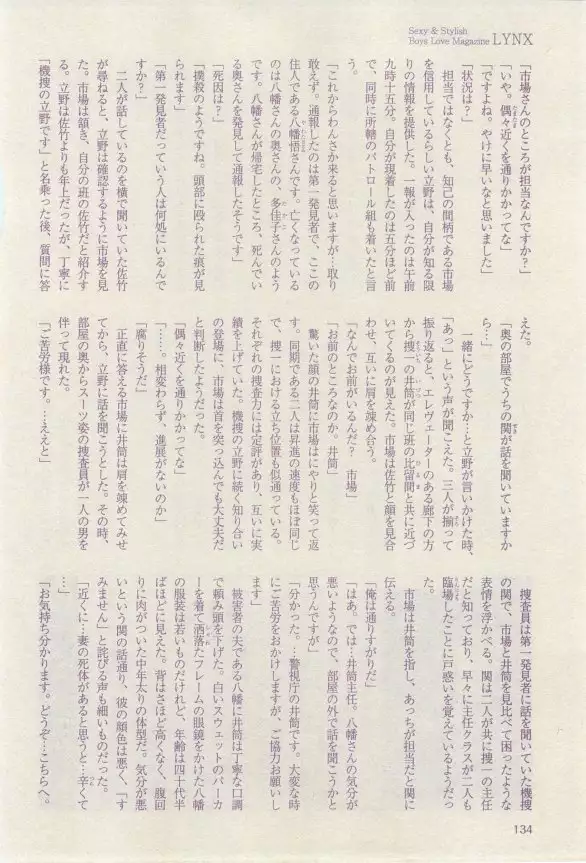 Sexy & Stylish
Boys Love Magazine LYNX
「市場さんのところが担当なんですか？」
「いや。偶々近くを通りかかってな」
「ですよね。やけに早いなと思いました」
「状況は？」
担当ではなくとも、知己の間柄である市場
を信用しているらしい立野は、自分が知る限
りの情報を提供した。一報が入ったのは午前
九時十五分。自分が現着したのは五分ほど前
で、同時に所轄のパトロール組も着いたと言
う。
「これからわんさか来ると思いますが…取り
敢えず。通報したのは第一発見者で、ここの
住人である八幡悟さんです。亡くなっている
のは八幡さんの奥さんの、多佳子さんのよう
です。八幡さんが帰宅したところ、死んでい
る奥さんを発見して通報したそうです」
「死因は？」
「撲殺のようですね。頭部に殴られた痕が見
られます」
「第一発見者だっていう人は何処にいるんで
すか？」
二人が話しているのを横で聞いていた佐竹
が尋ねると、立野は確認するように市場を見
た。市場は頷き、自分の班の佐竹だと紹介す
る。立野は佐竹よりも年上だったが、丁寧に
「機捜の立野です」と名乗った後、質問に答
えた。
「奥の部屋でうちの関が話を聞いていますか
ら…」
一緒にどうですか…と立野が言いかけた時、
「あっ」という声が聞こえた。三人が揃って
振り返ると、エレヴェーターのある廊下の方
から捜一の井筒が同じ班の比留間と共に近づ
いてくるのが見えた。市場は佐竹と顔を見合
わせ、互いに肩を竦め合う。
「なんでお前がいるんだ？　市場」
「お前のところなのか。井筒」
驚いた顔の井筒に市場はにやりと笑って返
す。同期である二人は昇進の速度もほぼ同じ
で、捜一における立ち位置も似通っている。
それぞれの捜査力には定評があり、互いに実
績を上げていた。機捜の立野に続く知り合い
の登場に、市場は首を突っ込んでも大丈夫だ
と判断したようだった。
「偶々近くを通りかかってな」
「……。相変わらず、進展がないのか」
「腐りそうだ」
正直に答える市場に井筒は肩を竦めてみせ
てから、立野に話を聞こうとした。その時、
部屋の奥からスーツ姿の捜査員が一人の男を
伴って現れた。
「ご苦労様です。…ええと」
捜査員は第一発見者に話を聞いていた機捜
の関で、市場と井筒を見比べて困ったような
表情を浮かべる。関は二人が共に捜一の主任
だと知っており、早々に主任クラスが二人も
臨場したことに戸惑いを覚えているようだっ
た。
市場は井筒を指し、あっちが担当だと関に
伝える。
「俺は通りすがりだ」
「はあ。では…井筒主任。八幡さんの気分が
悪いようなので、部屋の外で話を聞こうかと
思うんですが」
「分かった。…警視庁の井筒です。大変な時
にご苦労をおかけしますが、ご協力お願いし
ます」
被害者の夫である八幡に井筒は丁寧な口調
で頼み頭を下げた。白いスウェットのパーカ
ーを着て洒落たフレームの眼鏡をかけた八幡
の服装は若いものだけれど、年齢は四十代半
ばほどに見えた。背はさほど高くなく、腹回
りに肉がついた中年太りの体型だ。気分が悪
いという関の話通り、彼の顔色は悪く、「す
みません」と詫びる声も細いものだった。
「近くに…妻の死体があると思うと…辛くて
…」
「お気持ち分かります。どうぞ…こちらへ。
134